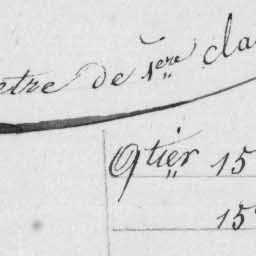 etre de 1ere cla
Qtier 15
15